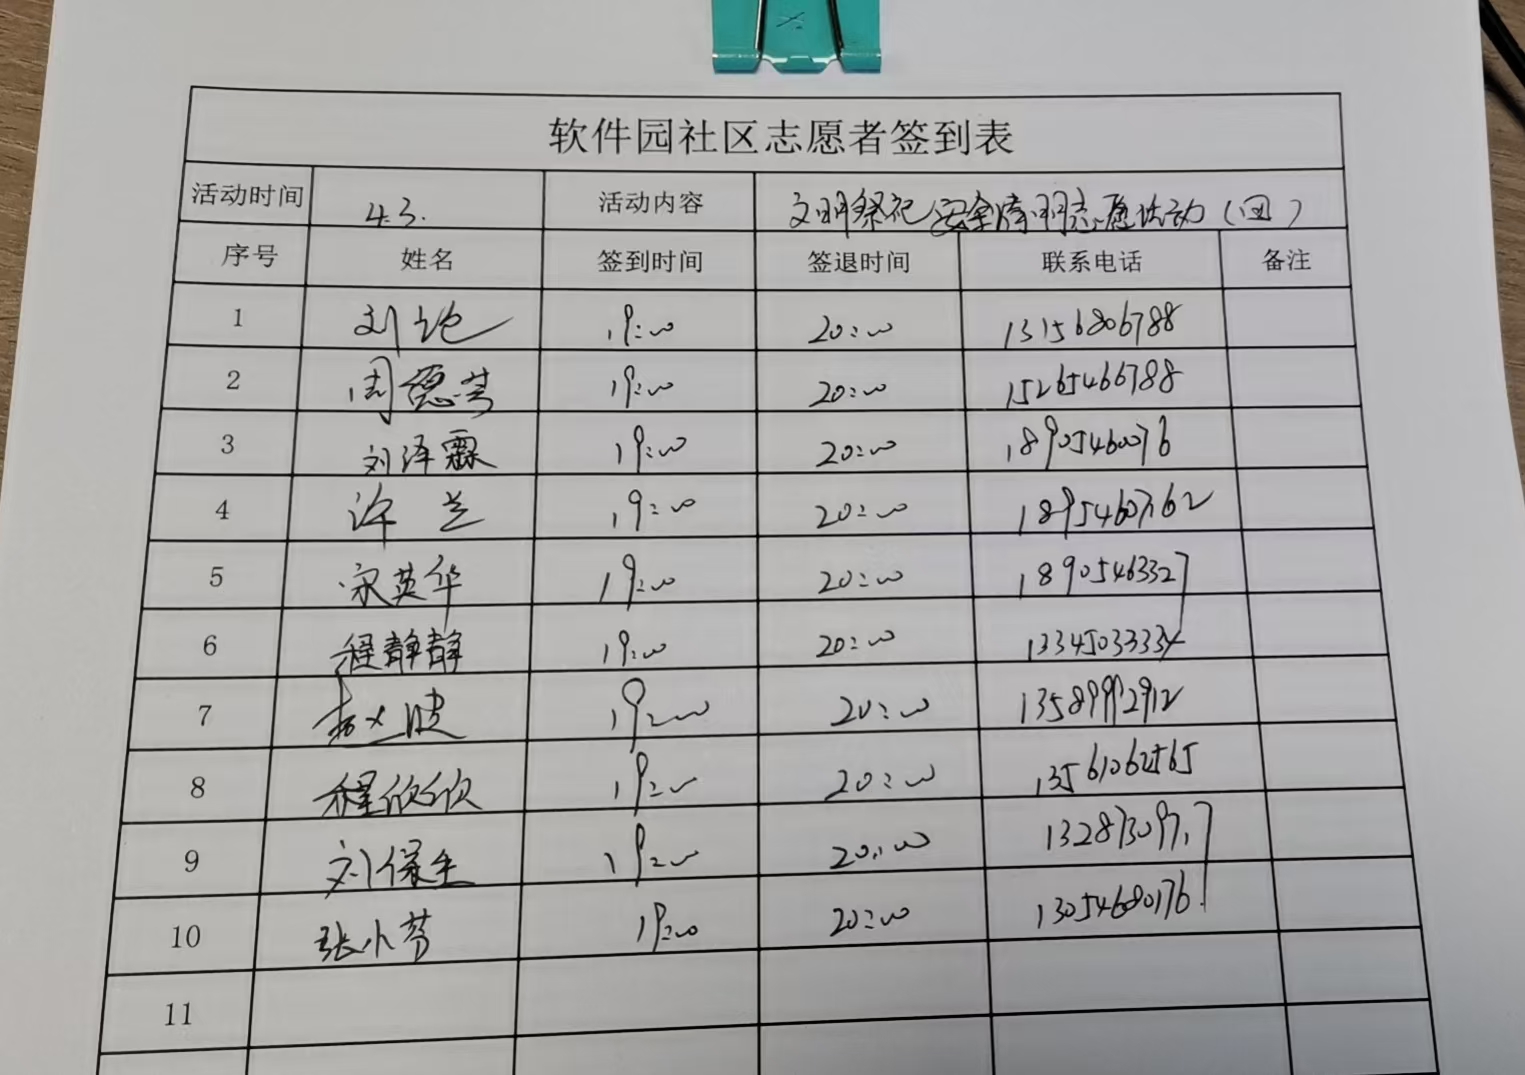 软件园社区志愿者签到表
活动时间 4.3. 活动内容 文明祭祀安全清明志愿活动（四）
序号 姓名 签到时间 签退时间 联系电话 备注
1 刘 19:00 20:00 13156806788
2 周德芳 19:00 20:00 15265466788
3 刘泽霖 19:00 20:00 18905460076
4 许兰 19:00 20:00
5 宋英华 19:00 20:00 18905463327
6 程静静 19:00 20:00 13345033334
7 赵 19:00 20:00 13589992912
8 程欣欣 19:00 20:00 13561062565
9 刘保全 19:00 20:00
10 张小芳 19:00 20:00 13054680176
11